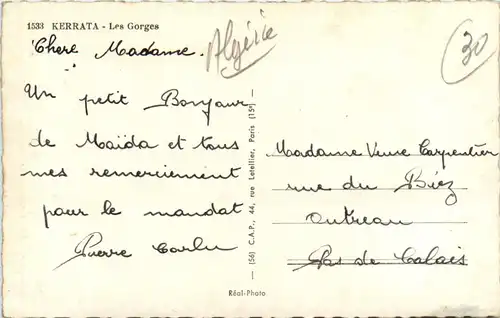 1533 KERRATA - Les Gorges
Chere Madame.
Algérie
30
Un petit Bonjour
de Maïda et tous
mes remerciement
pour le mandat
Pierre Carlu
(56) C.A.P., 44, rue Letellier, Paris (15e)
Madame Veuve Carpentier
rue du Biez
Outreau
Pas de Calais
Réal-Photo